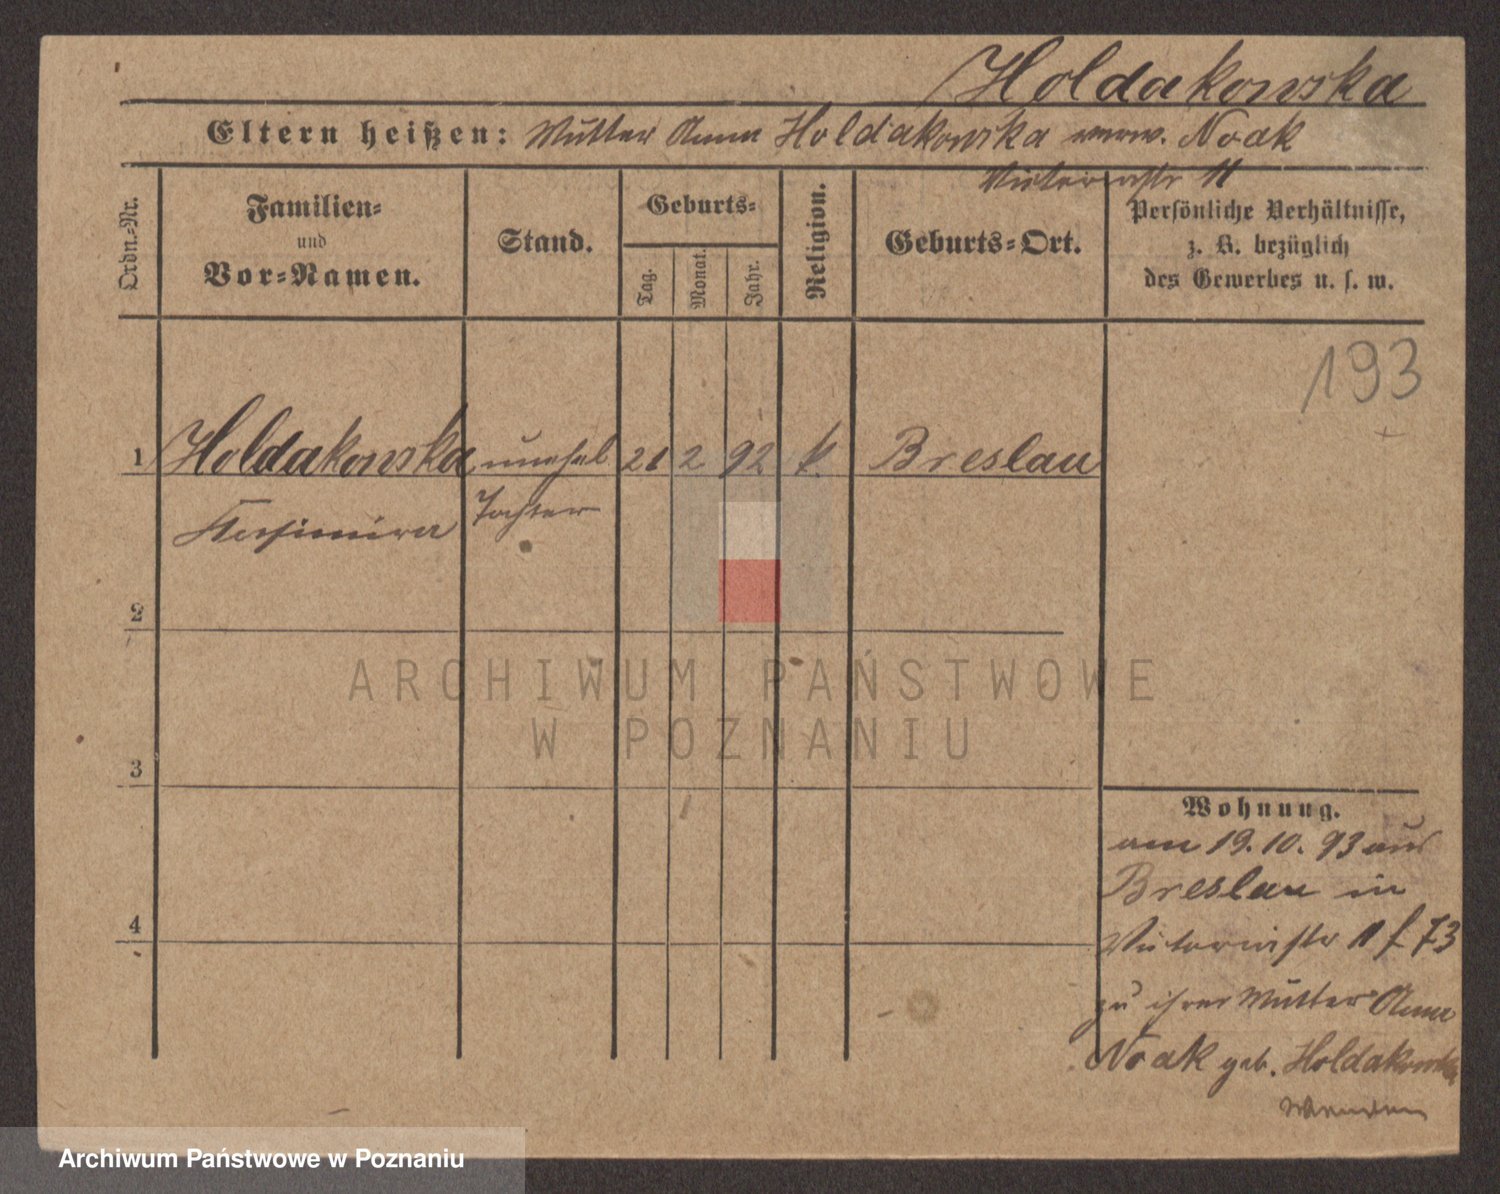 Holdakowska
Eltern heißen: Mutter Anna Holdakowska verw. Noak
Victoriastr 11
Ordn.-Nr.
Familien-
und
Vor-Namen.
Stand.
Geburts-
Tag.
Monat.
Jahr.
Religion.
Geburts-Ort.
Persönliche Verhältnisse,
z. B. bezüglich
des Gewerbes u. s. w.
193
1 Holdakowska unehel 21 2 92 k Breslau
Kasimira Tochter
2
3
4
Wohnung.
am 19.10.93 aus
Breslau in
Victoriastr 11 f 73
zu ihrer Mutter Anna
Noak geb. Holdakowska
ARCHIWUM PAŃSTWOWE
W POZNANIU
Archiwum Państwowe w Poznaniu